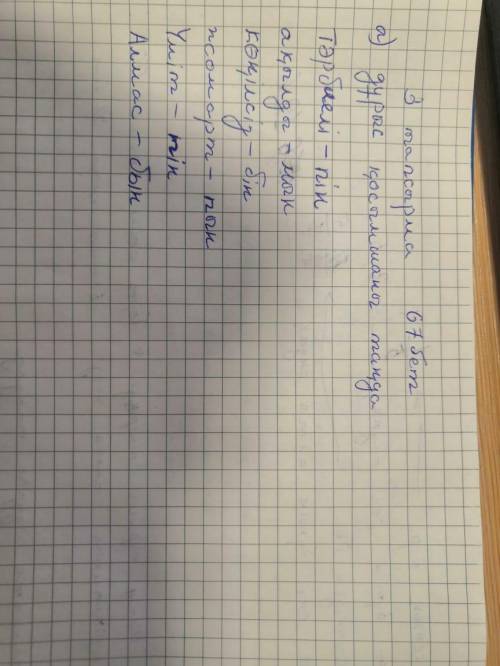 3 тапсырма 67 бет
а) дұрыс қосымшаны таңда
Тәрбиелі - пін
ақылды - мын
көңілсіз - бін
жомарт - пын
Үміт - пін
Алмас - бын